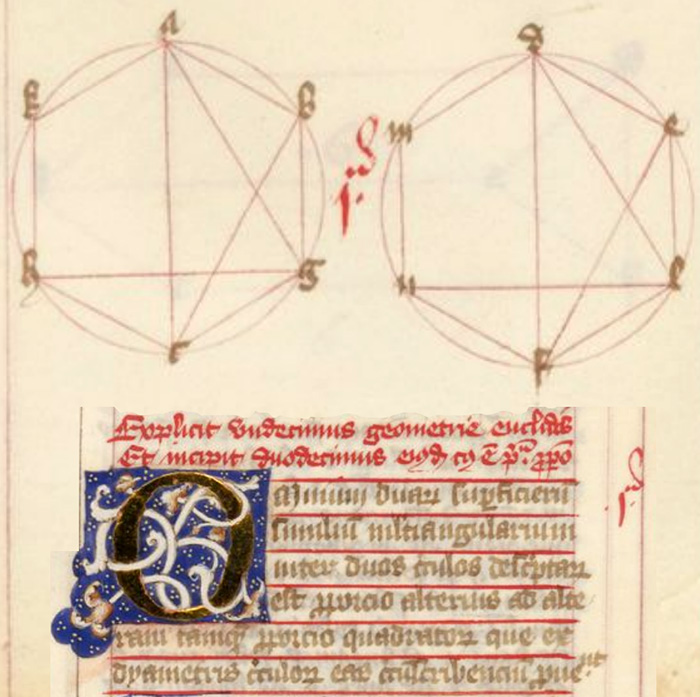 a
k b
h g
c
.i.
d
m e
n l
f
Explicit undecimus geometrie euclidis
Et incipit duodecimus
Omnium duarum superficierum
similium multiangularium
inter duos circulos descriptarum
est proporcio alterius ad alte
ram tamquam proporcio quadratorum que ex
dyametris circulorum eas circumscribencium